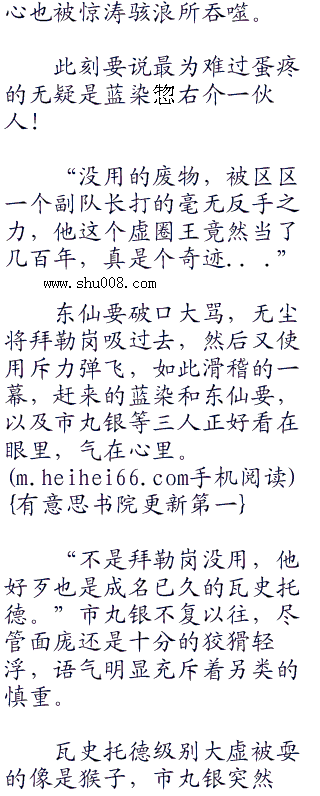 心也被惊涛骇浪所吞噬。
此刻要说最为难过蛋疼
的无疑是蓝染惣右介一伙
人！
“没用的废物，被区区
一个副队长打的毫无反手之
力，他这个虚圈王竟然当了
几百年，真是个奇迹...”
www.shu008.com
东仙要破口大骂，无尘
将拜勒岗吸过去，然后又使
用斥力弹飞，如此滑稽的一
幕，赶来的蓝染和东仙要，
以及市丸银等三人正好看在
眼里，气在心里。
(m.heihei66.com手机阅读)
{有意思书院更新第一}
“不是拜勒岗没用，他
好歹也是成名已久的瓦史托
德。”市丸银不复以往，尽
管面庞还是十分的狡猾轻
浮，语气明显充斥着另类的
慎重。
瓦史托德级别大虚被耍
的像是猴子，市丸银突然